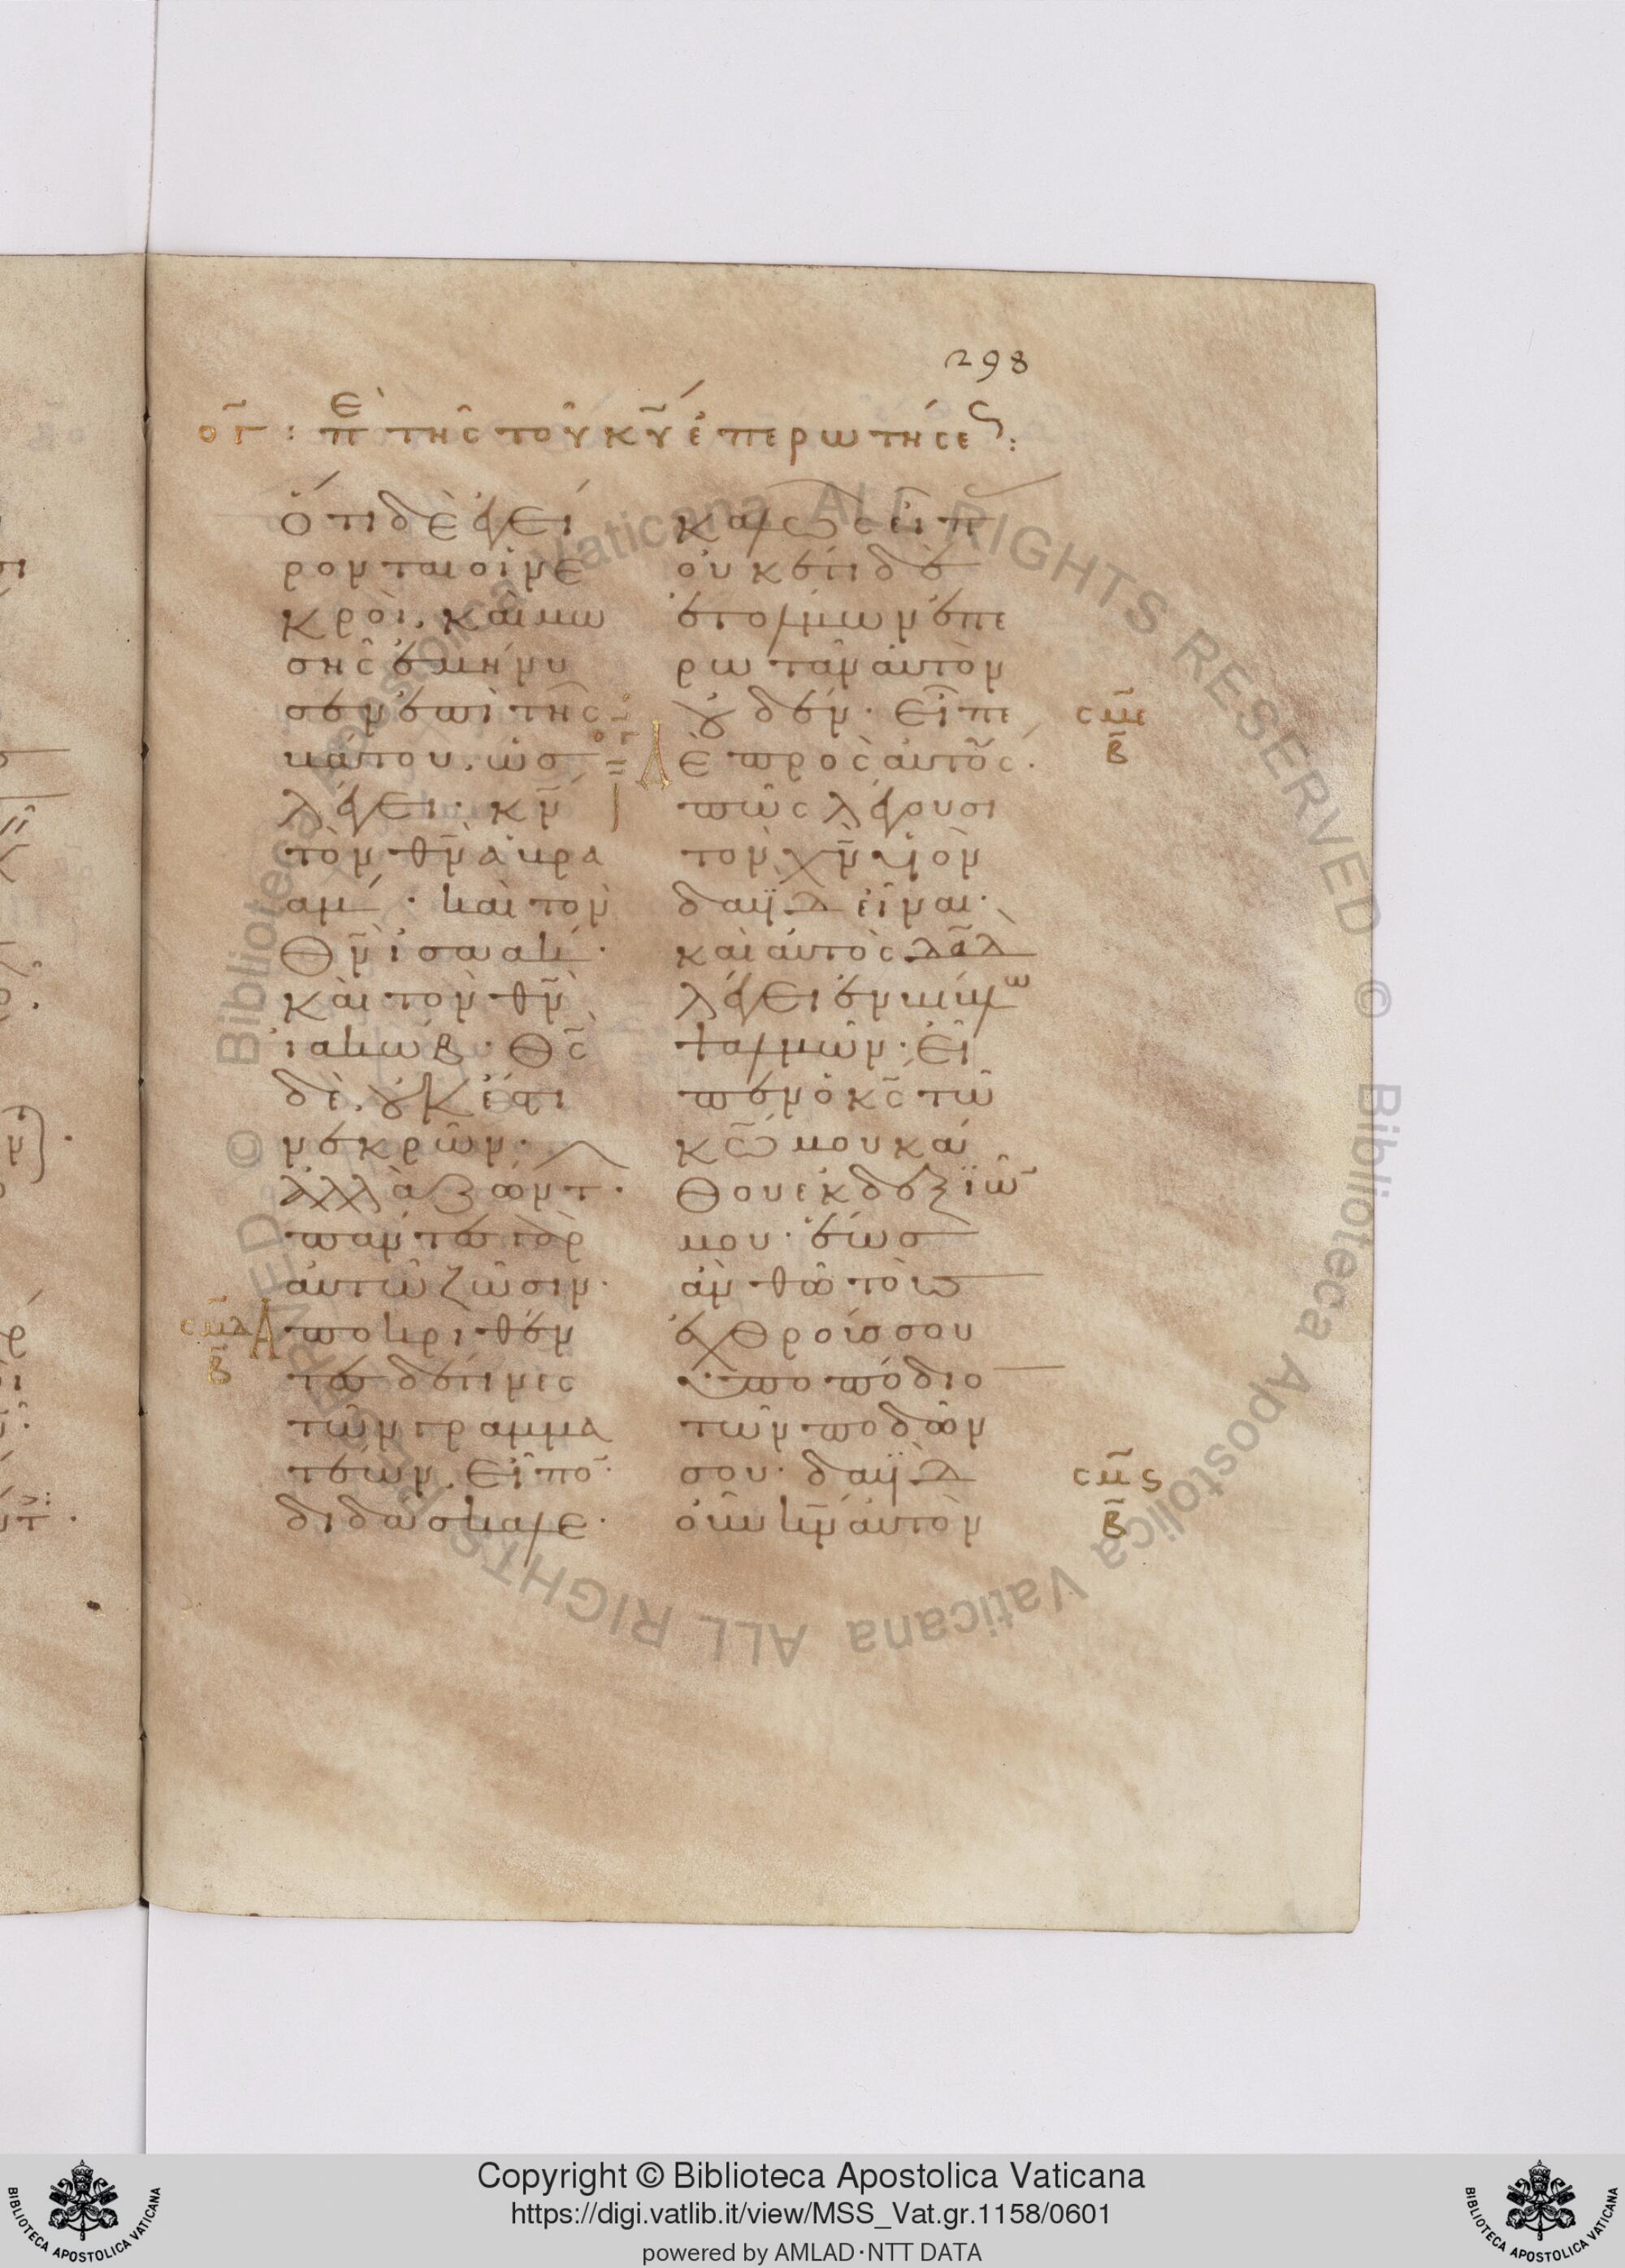 298
ογ : περὶ τῆς τοῦ κυ ἐπερωτήσεως :
Ὅτι δὲ ἐγεί
ρονται οἱ νε
κροὶ. καὶ μω
σῆς ἐμήνυ
σεν ἐπὶ τῆς
βάτου. ὡσ
λέγει· κν
τὸν θν ἀβρα
αμ· καὶ τὸν
θν ἰσαακ·
καὶ τὸν θν
ἰακώβ· θς
δὲ οὐκ ἔστι
νεκρῶν·
ἀλλὰ ζώντ·
πάντες γὰρ
αὐτῷ ζῶσιν·
σμδ
β
Ἀποκριθέν
τες δέ τινες
τῶν γραμμα
τέων. εἶπον·
διδάσκαλε·
καλῶς εἶπ
οὐκέτι δὲ
ἐτόλμων ἐπε
ρωτᾶν αὐτὸν
οὐδέν· Εἶπε
σμε
β
ογ
δὲ πρὸς αὐτούς·
πῶς λέγουσι
τὸν χν υἱὸν
δαδ εἶναι·
καὶ αὐτὸς δαδ
λέγει ἐν βίβλω
ψαλμῶν· εἶ
πεν ὁ κς τῶ
κω μου κάθου ἐκ δεξιῶν
μου· ἕωσ
ἂν θῶ τοὺσ
ἐχθρούς σου
ὑποπόδιο
τῶν ποδῶν
σου· δαδ
σμς
β
οὖν κν αὐτὸν
Copyright © Biblioteca Apostolica Vaticana
https://digi.vatlib.it/view/MSS_Vat.gr.1158/0601
powered by AMLAD·NTT DATA
BIBLIOTECA APOSTOLICA VATICANA
BIBLIOTECA APOSTOLICA VATICANA
© Biblioteca Apostolica Vaticana ALL RIGHTS RESERVED © Biblioteca Apostolica Vaticana ALL RIGHTS RESERVED